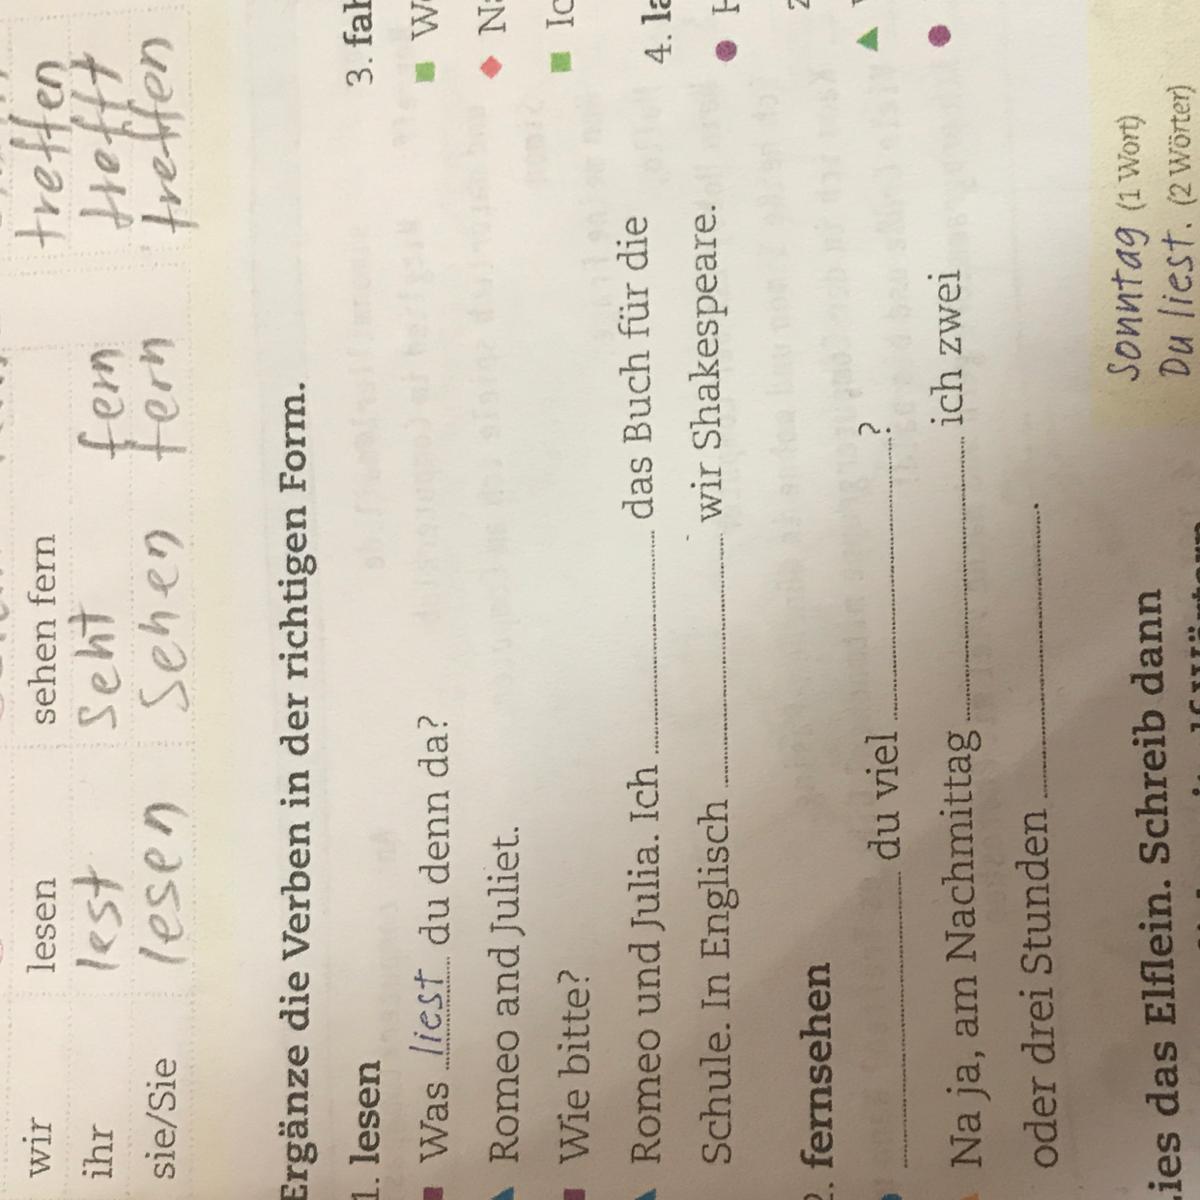 treffen
wir lesen sehen fern trefft
ihr lest seht fern treffen
sie/Sie lesen sehen fern
Ergänze die Verben in der richtigen Form.
1. lesen
Was liest du denn da?
Romeo and Juliet.
Wie bitte?
Romeo und Julia. Ich das Buch für die
Schule. In Englisch wir Shakespeare.
2. fernsehen
du viel ?
Na ja, am Nachmittag ich zwei
oder drei Stunden .
3.
4.
Sonntag (1 Wort)
Du liest. (2 Wörter)
das Elflein. Schreib dann